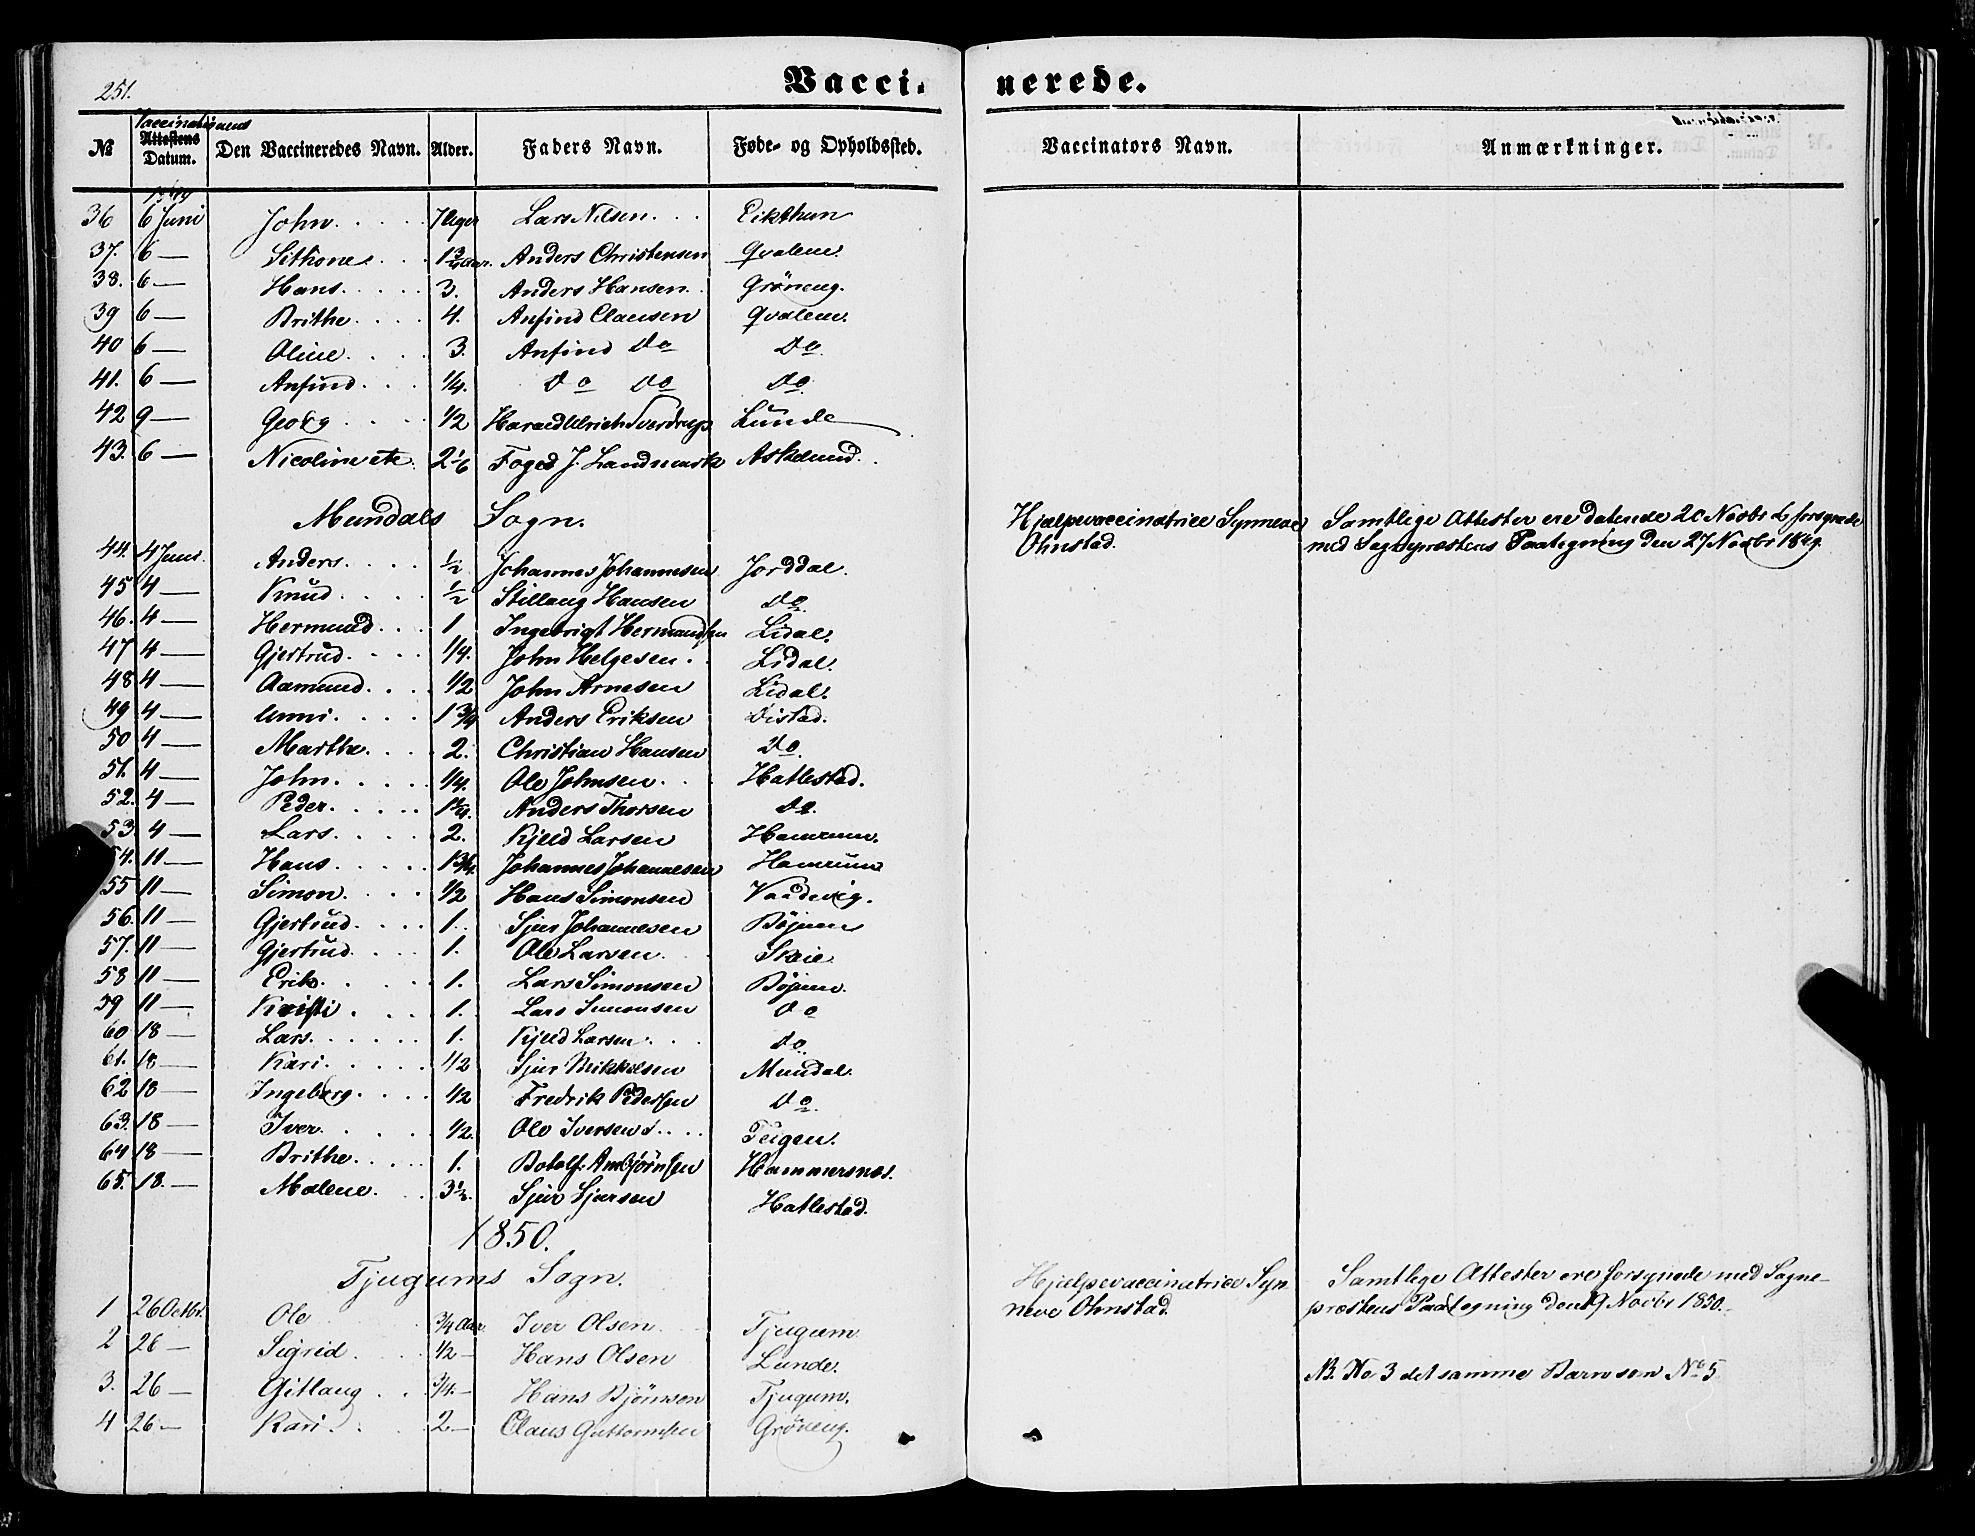 251.
Vaccinerede.
Vaccinationens
№ Attestens Datum. Den Vaccineredes Navn. Alder. Faders Navn. Føde- og Opholdssted. Vaccinators Navn. Anmærkninger.
1849
36 6 Juni John Uger Lars Nilsen Eikthun
37. 6 — Sithone 1 3/4 Aar. Anders Christensen Qvalem
38. 6 — Hans 3. Anders Hansen Grøneng.
39 6 — Brithe 4. Anfind Clausen Qvalem.
40 6 — Oline 3. Anfind Do Do
41. 6 — Anfind 1/4. Do Do Do
42 9 — Georg 1/2 Harald Ulrich Sverdrup Lunde
43. 6 — Nicoline etc. 2 1/6 Foged J. Landmark Askelund.
Mundals Sogn. Hjælpevaccinatrice Synneve Samtlige Attester ere daterede 20 Novbr forsynede
Ohnstad. med Sognepræstens Paategning den 27 Novbr 1849.
44. 4 Juni Anders 1/2 Johannes Johannesen Jorddal.
45 4 — Knud 1/2 Stillaug Hansen Do
46. 4 — Hermund 1 Ingebrigt Hermundsen Lidal.
47 4 — Gjertrud 1/4. John Helgesen Lidal.
48 4 — Aamund 1/2 John Arnesen Lidal.
49 4 — Anni 1 3/4 Anders Eriksen Distad.
50 4 — Marthe 2. Christian Hansen Do
51. 4 — John 1/4. Ole Johnsen Hatlestad.
52. 4 — Peder 1 3/4. Anders Thorsen Do.
53. 4 — Lars 2. Kjeld Larsen Hamrum.
54. 11 — Hans 1 3/4. Johannes Johannesen Hamrum
55 11 — Simon 1/2 Hans Simonsen Vaadevig.
56. 11 — Gjertrud 1. Sjur Johannesen Bøjum
57. 11 — Gjertrud 1. Ole Larsen Skeie
58 11 — Erik 1. Lars Simonsen Bøjum.
59 11 — Kristi 1. Lars Simonsen Do
60 18 — Lars 1. Kjeld Larsen Do
61. 18 — Kari 1/2 Sjur Mikkelsen Mundal.
62 18 — Ingeborg 1/2 Fredrik Pedersen Do
63. 18 — Iver 1/2. Ole Iversen Teigen.
64 18 — Brithe 1. Botolf Ambjørnsen Hammersnes.
65. 18. — Malene 3 1/2. Sjur Sjursen Hatlestad.
1850.
Tjugums Sogn. Hjælpevaccinatrice Syn Samtlige Attester ere forsynede med Sogne-
neve Ohnstad. præstens Paategning den 19 Novbr 1850.
1 26 Octbr. Ole 3/4 Aar Iver Olsen Tjugum
2 26 — Sigrid 1/2 — Hans Olsen Lunde.
3. 26 — Gitlaug 3/4. — Hans Bjørnson Tjugum. NB. No 3 det samme Barn som No 5
4 26 — Kari 2 — Claus Guttormsen Grøneng.